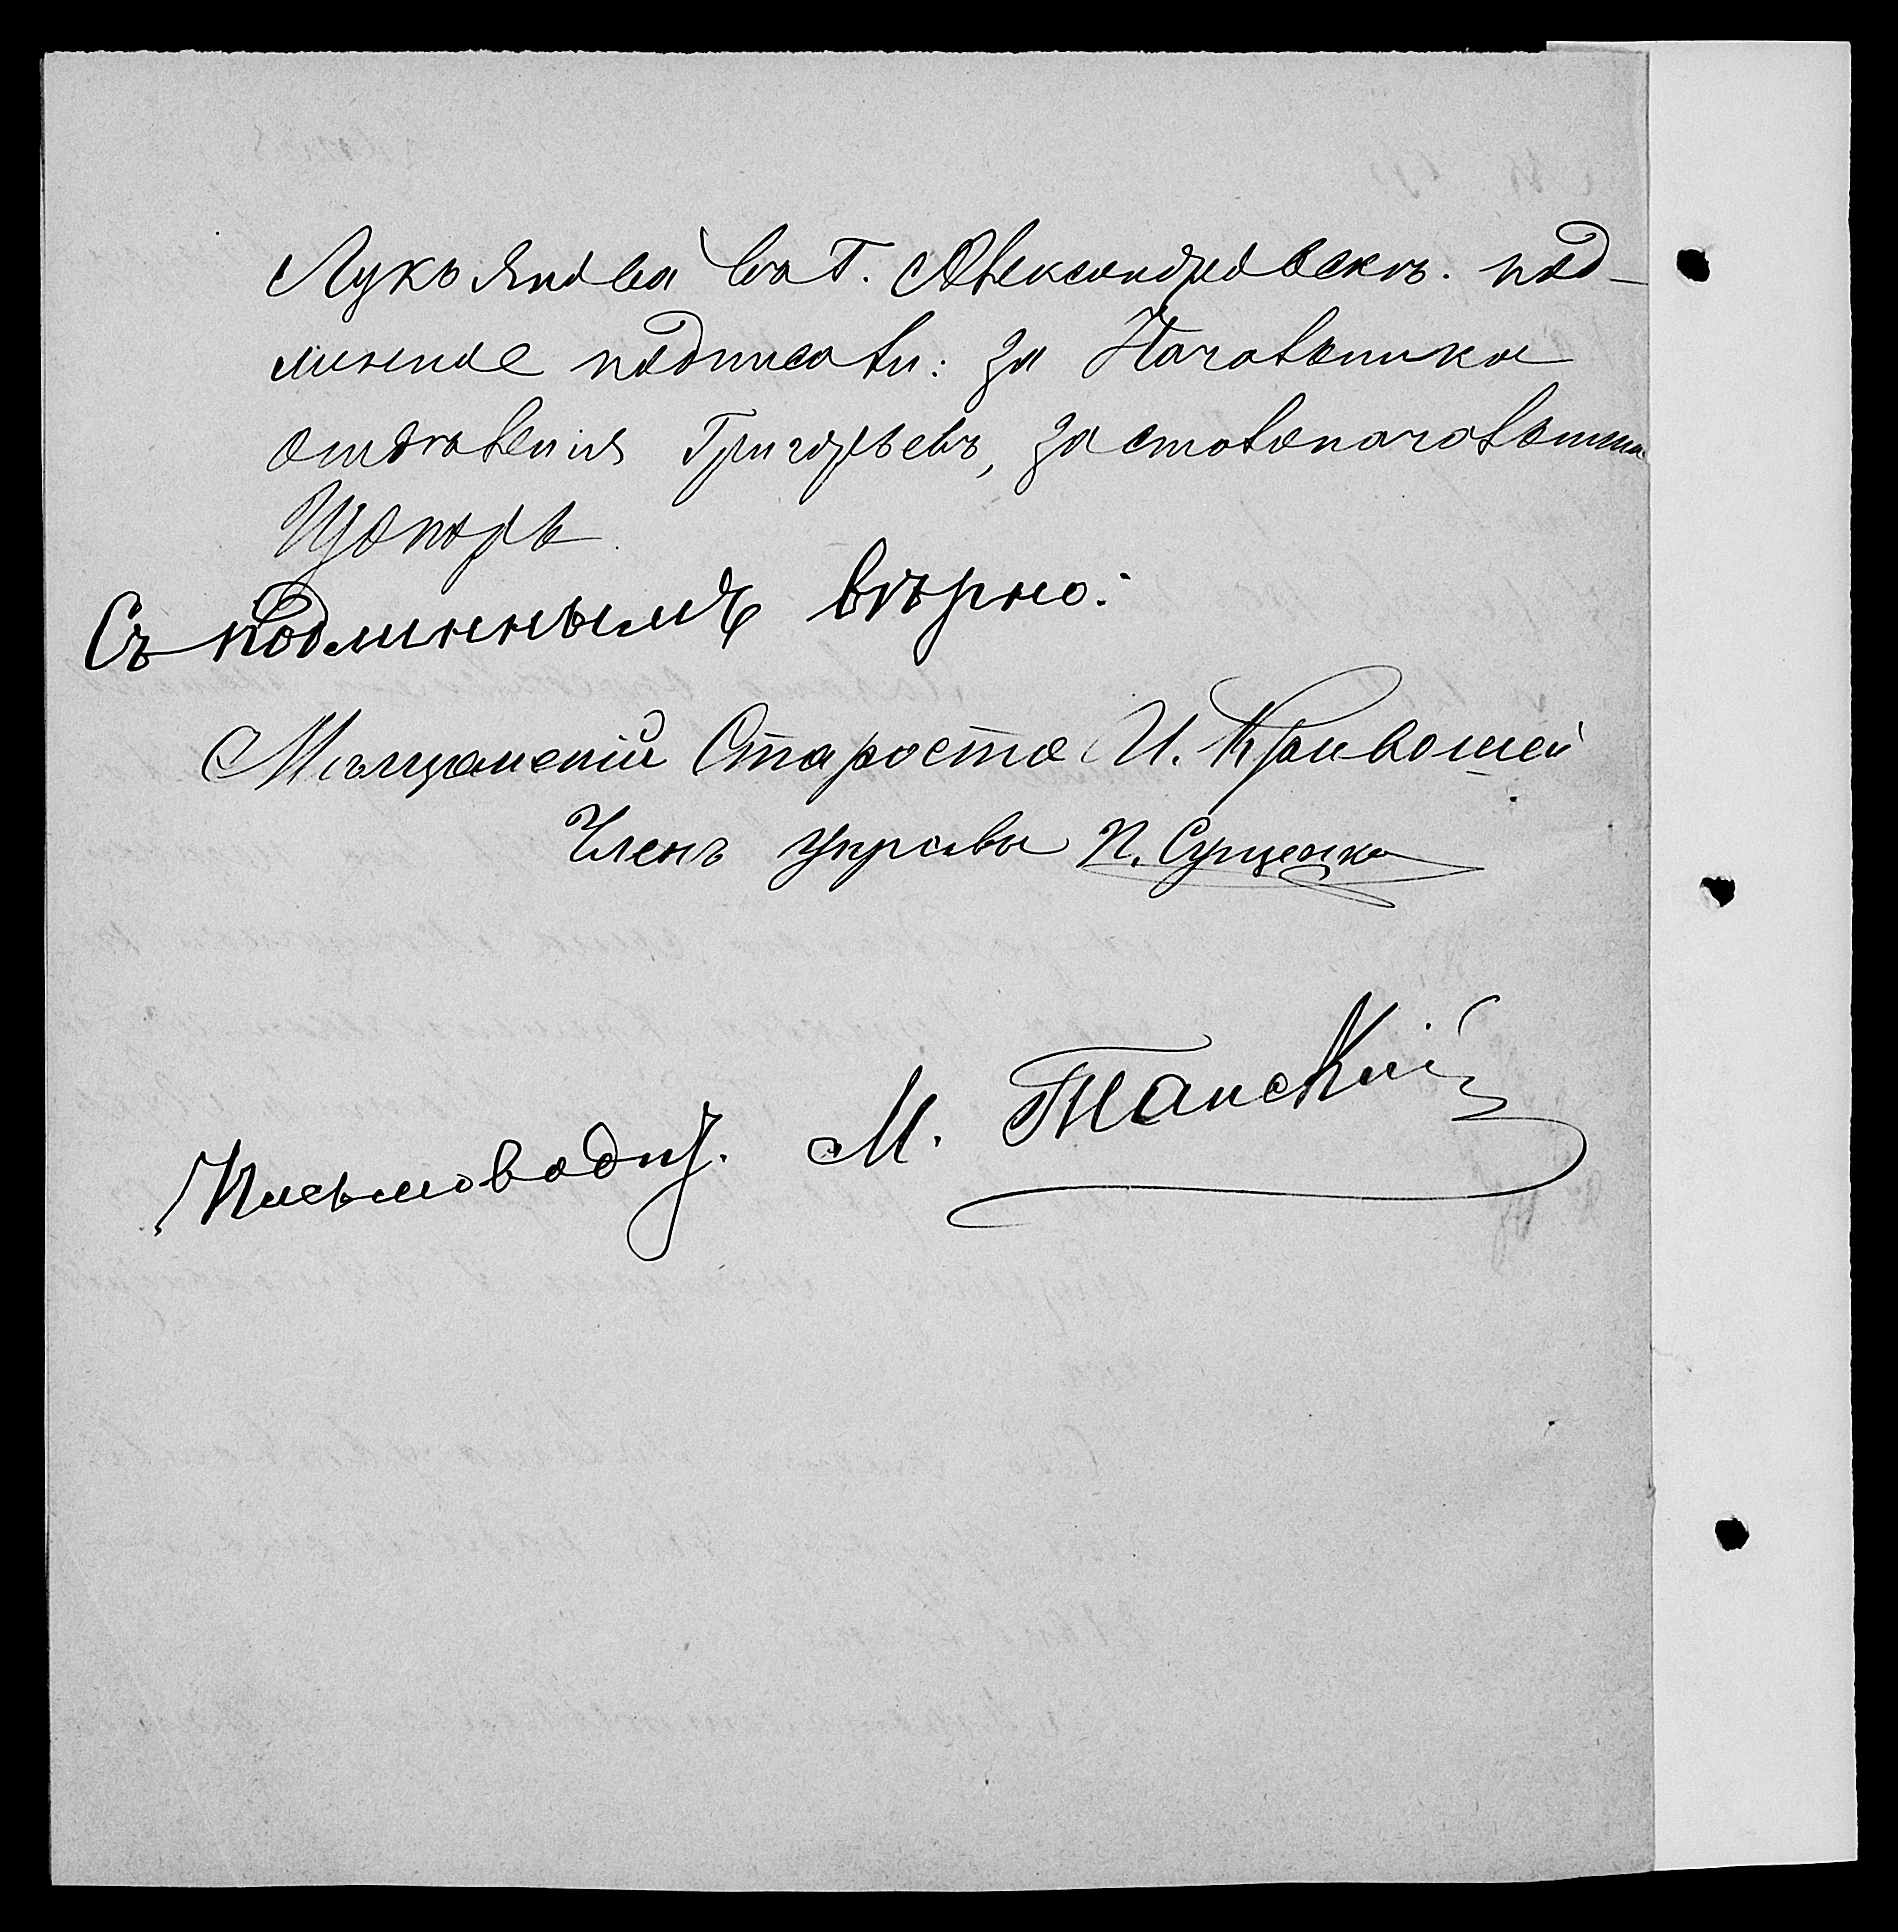 Лукьянова въ г. Александровскъ. под-
линное подписали: за Начальника
отдѣленія Григорьевъ, за столоначальника
Щопоръ
Съ подлиннымъ вѣрно:
Мѣщанскій Староста И. Кривошей
Членъ управы П. Сущенко
Письмоводит. М. Танскій